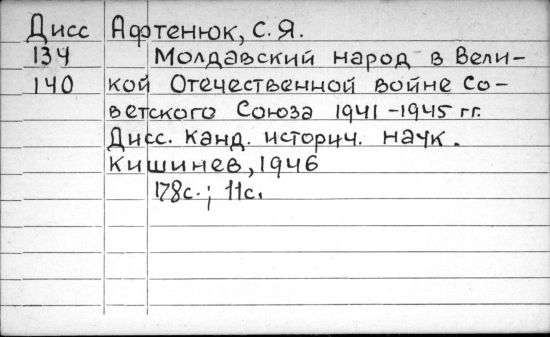 Дисс Афтенюк, С. Я.
134 Молдавский народ в Вели-
140 кой Отечественной войне Со-
ветского Союза 1941-1945 гг.
Дисс. канд. историч. наук.
Кишинев, 1946
178с.; 11с.